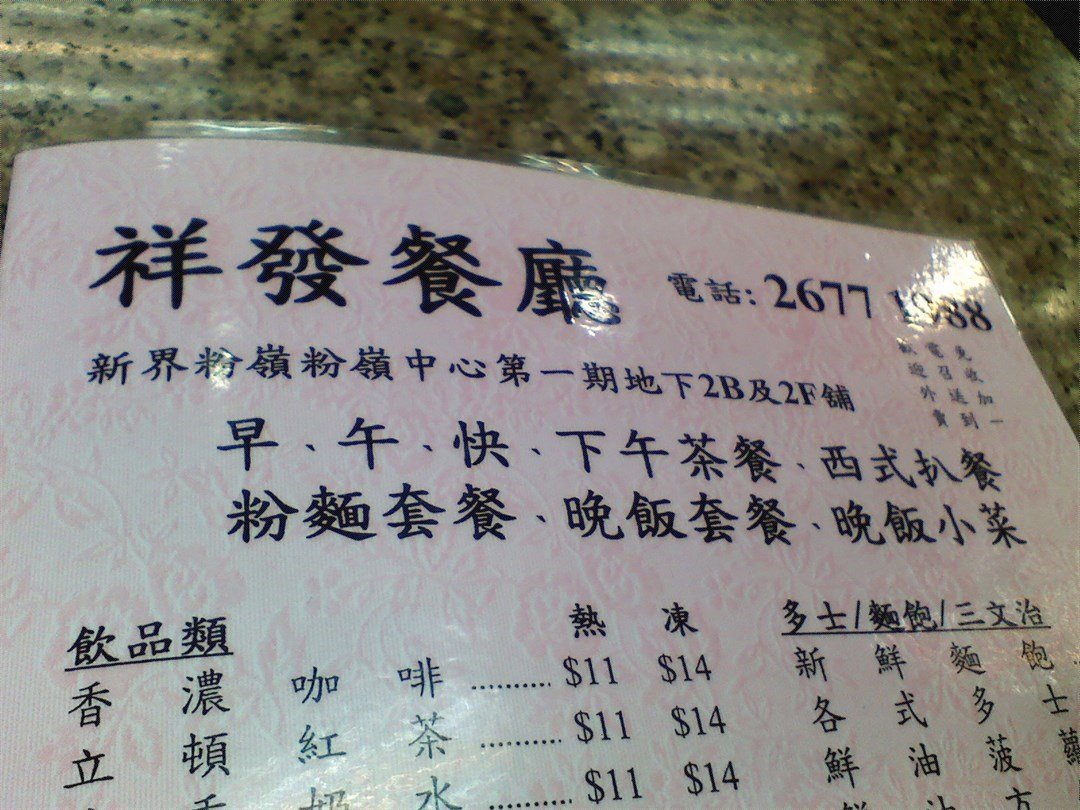 祥發餐廳
電話: 2677 1988
新界粉嶺粉嶺中心第一期地下2B及2F舖
免收加一
電召送到
歡迎外賣
早、午、快、下午茶餐、西式扒餐
粉麵套餐、晚飯套餐、晚飯小菜
飲品類 熱 凍
香濃咖啡 .......... $11 $14
立頓紅茶 .......... $11 $14
奶水 .......... $11 $14
多士/麵飽/三文治
新鮮麵飽
各式多士
鮮油菠蘿